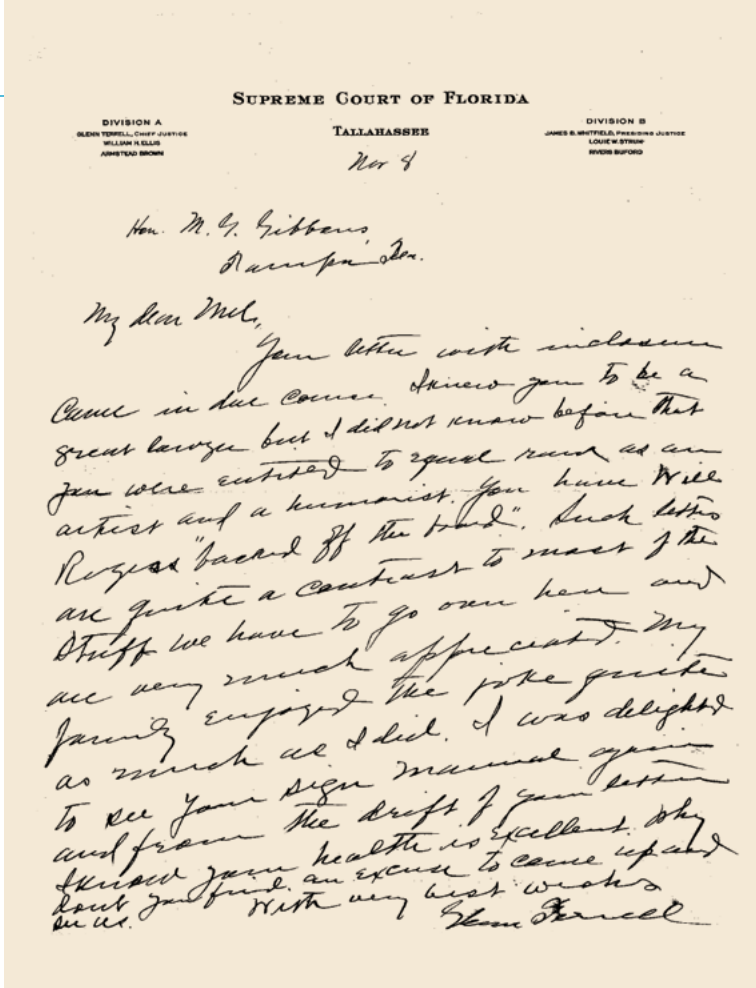 SUPREME COURT OF FLORIDA
TALLAHASSEE
DIVISION A
GLENN TERRELL, CHIEF JUSTICE
WILLIAM H. ELLIS
ARMSTEAD BROWN
DIVISION B
JAMES B. WHITFIELD, PRESIDING JUSTICE
LOUIE W. STRUM
RIVERS BUFORD
Nov 8
Hon. M. G. Gibbons,
Tampa Fla.
My dear Mel,
Your letter with inclosure
came in due course. I knew you to be a
great lawyer but I did not know before that
you were entitled to equal rank as an
artist and a humorist. You have Will
Rogers "backed off the board". Such letters
are quite a contrast to most of the
stuff we have to go over here and
are very much appreciated. My
family enjoyed the joke quite
as much as I did. I was delighted
to see your sign manual again
and from the drift of your letter
I know your health is excellent. Why
dont you find an excuse to come up and
see us.
With very best wishes
Glenn Terrell